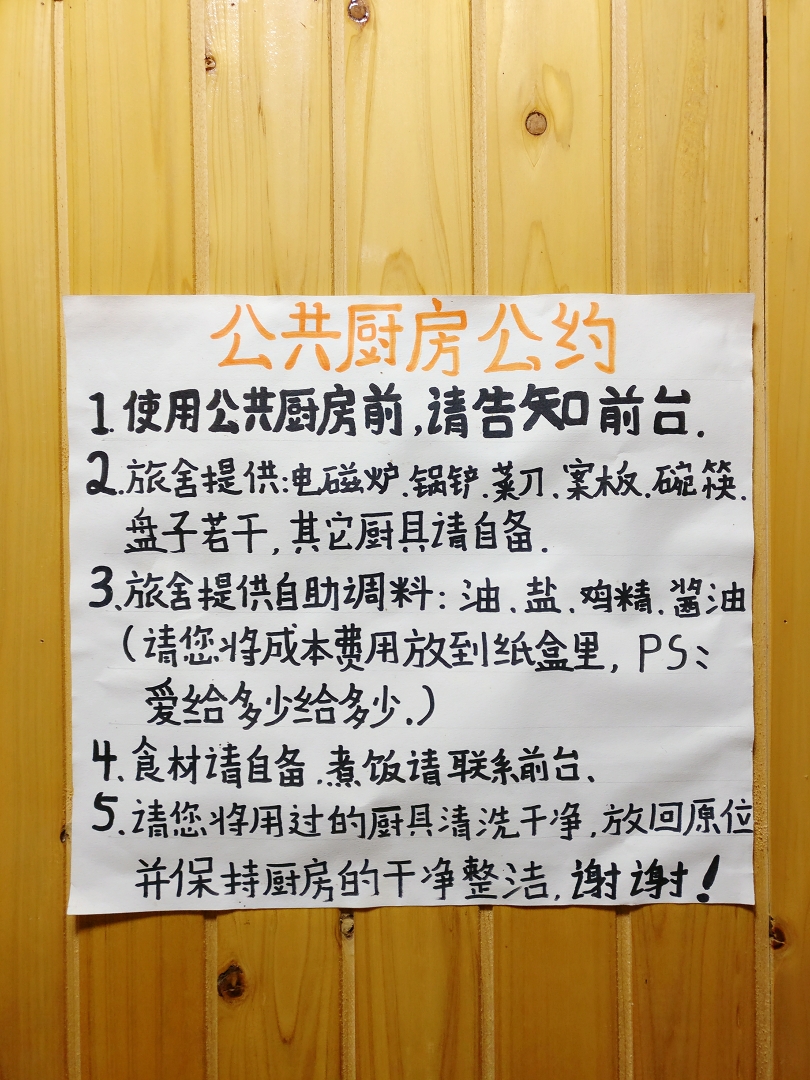 公共厨房公约
1.使用公共厨房前,请告知前台.
2.旅舍提供:电磁炉.锅铲.菜刀.案板.碗筷.
盘子若干,其它厨具请自备.
3、旅舍提供自助调料:油、盐、鸡精、酱油
(请您将成本费用放到纸盒里,PS:
爱给多少给多少.)
4、食材请自备.煮饭请联系前台、
5、请您将用过的厨具清洗干净,放回原位
并保持厨房的干净整洁,谢谢!